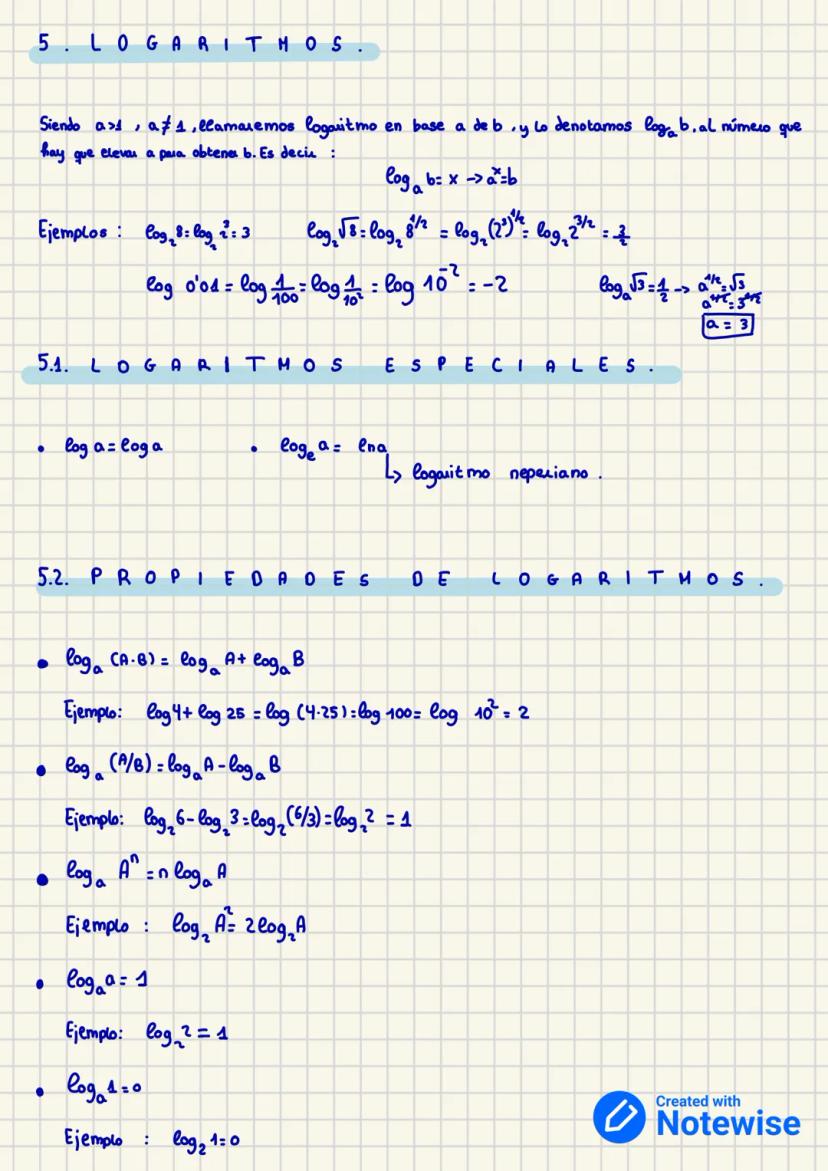 5. LOGARITMOS.
Siendo a>1, a≠1, llamaremos logaritmo en base a de b, y lo denotamos logₐb, al número que
hay que elevar a para obtener b. Es decir :
logₐ b = x -> aˣ=b
Ejemplos : log₂8=log₂2³=3 log₂√8=log₂8^1/2 = log₂(2³)^1/2 = log₂2^3/2 = 3/2
log 0'01 = log 1/100 = log 1/10² = log 10⁻² = -2 logₐ√3=1/2 -> a^1/2=√3
a^1/2=3^1/2
a = 3
5.1. LOGARITMOS ESPECIALES.
• log a = log a • logₑ a = lna
↳ logaritmo neperiano.
5.2. PROPIEDADES DE LOGARITMOS.
• logₐ (A·B) = logₐ A + logₐ B
Ejemplo: log4+ log 25 = log (4·25)=log 100= log 10² = 2
• logₐ (A/B) = logₐA - logₐB
Ejemplo: log₂6-log₂3=log₂(6/3)=log₂2 = 1
• logₐ Aⁿ = n logₐ A
Ejemplo : log₂ A² = 2log₂A
• logₐa = 1
Ejemplo: log₂2 = 1
• logₐ1=0
Ejemplo : log₂ 1=0
Created with
Notewise